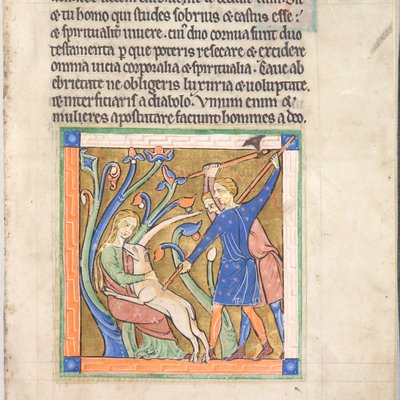 & tu homo qui studes sobrius & castus esse:
& spiritualit̄ uiuere. cui᷒ duo cornua sunt duo
testamenta per que poteris resecare & excidere
omnia uicia corporalia & spiritualia. Caue ab
ebrietate ne obligeris luxuria & uoluptate.
& interficiaris a diabolo. Vinum enim &
mulieres apostatare faciunt homines a deo.